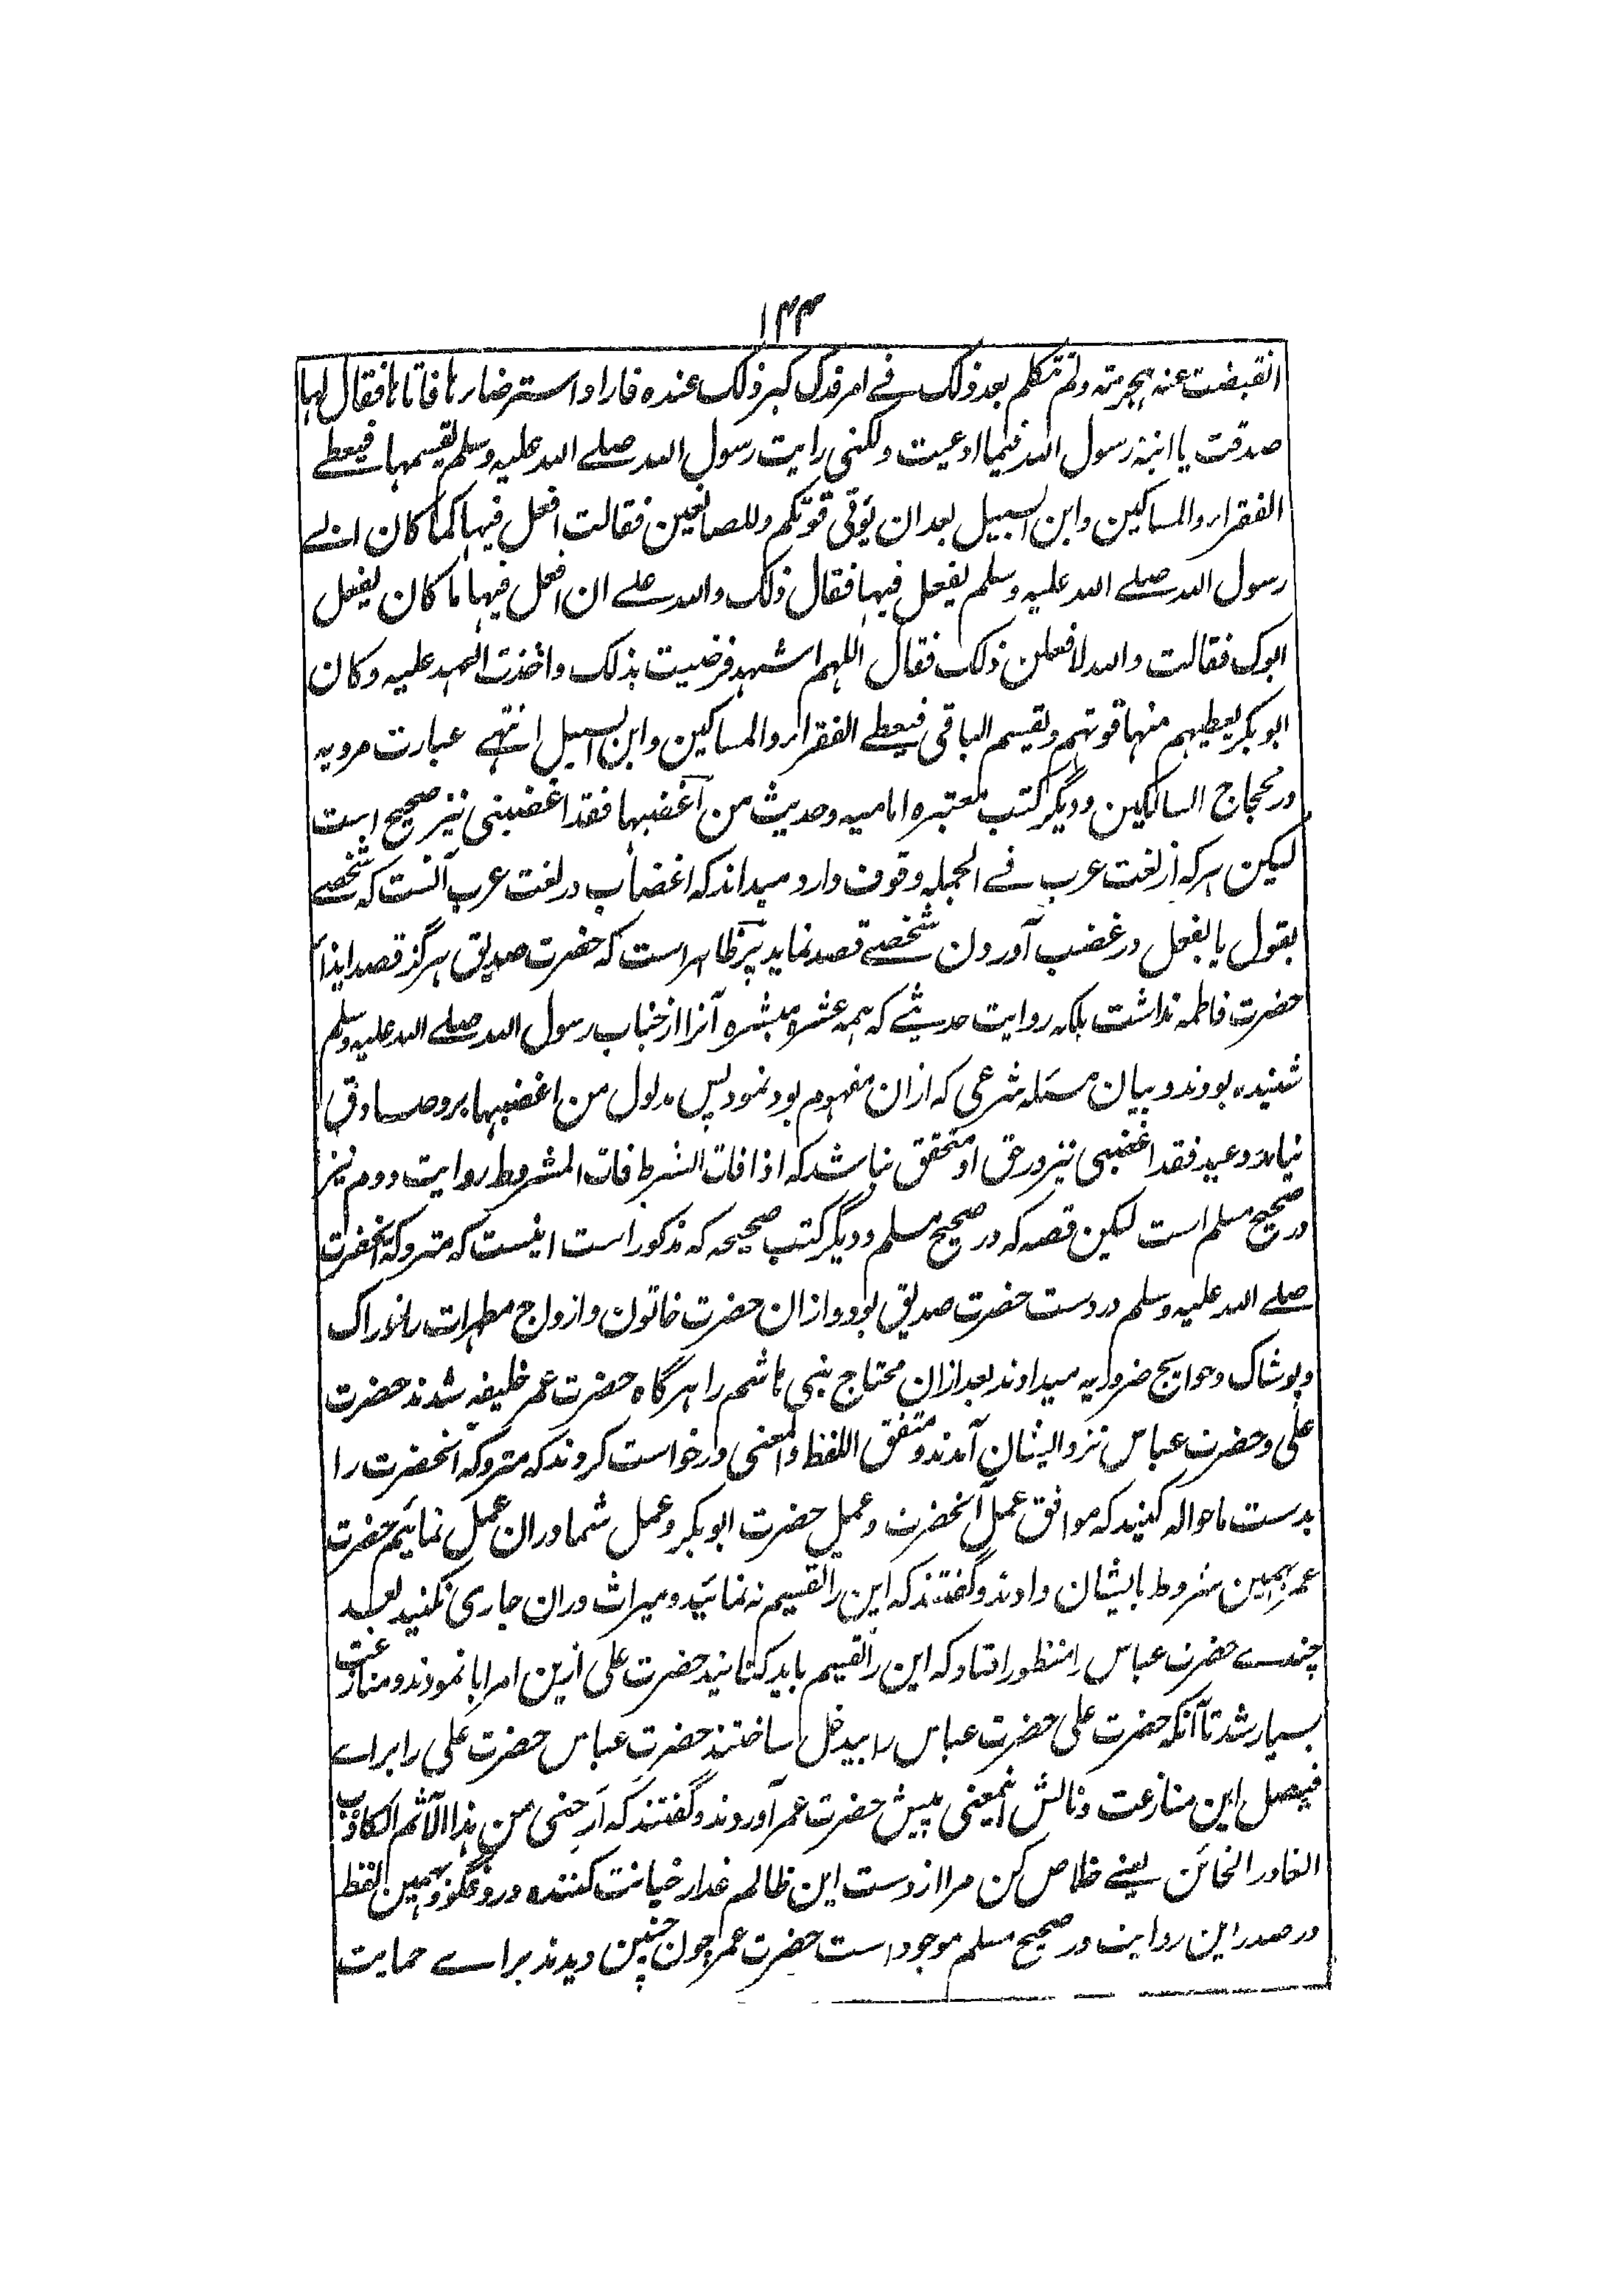 ۱۴۴
انقبضت عنه بهجرته ولم تتكلم بعد ذلک فے امر فدک کبر ذلک عنده فاراد استرضارها فاتاها فقال لها
صدقت یا ابنة رسول الله فیما ادعیت ولکنی رایت رسول الله صلے الله علیه وسلم یقسمها فیعطے
الفقراء والمساکین وابن السبیل بعد ان یوتی قوتکم وللصانعین فقالت افعل فیها کما کان ابے
رسول الله صلے الله علیه وسلم یفعل فیها فقال ذلک والله علے ان افعل فیها ما کان یفعل
ابوک فقالت والله لافعلن ذلک فقال اللهم اشهد فرضیت بذلک واخذت العهد علیه وکان
ابوبکر یعطیهم منها قوتهم ویقسم الباقی فیعطے الفقراء والمساکین وابن السبیل انتهے عبارت مرویه
در محجاج السالکین ودیگر کتب معتبره امامیه وحدیث من اغضبها فقد اغضبنی نیز صحیح است
لیکن هرکه از لغت عرب فے الجمله وقوف دارد میداند که اغضاب در لغت عرب آنست که شخصے
بقول یا بفعل در غضب آوردن شخصے قصد نماید پرظاهر است که حضرت صدیق هرگز قصد ایذاء
حضرت فاطمه نداشت بلکه روایت حدیثے که همه عشره مبشره آنرا از جناب رسول الله صلے الله علیه وسلم
شنیده بودند و بیان مسئله شرعی که ازان مفهوم بود نمود پس مدلول من اغضبها برو صادق
نیاند و عید فقد اغضبنی نیز در حق او متحقق نباشد که اذا فات الشرط فات المشروط روایت دوم نیز
در صحیح مسلم است لیکن قصه که در صحیح مسلم ودیگر کتب صحیحه که مذکور است اینست که متروکه آنحضرت
صلے الله علیه وسلم در دست حضرت صدیق بود وازان حضرت خاتون وازواج مطهرات را خوراک
وپوشاک وحوایج ضروریه میدادند بعد ازان محتاج بنی هاشم را هرگاه حضرت عمر خلیفه شدند حضرت
علی وحضرت عباس نزد ایشان آمدند و متفق اللفظ والمعنی درخواست کردند که متروکه آنحضرت را
بدست ما حواله کنید که موافق عمل آنحضرت وعمل حضرت ابوبکر وعمل شما دران عمل نمائیم حضرت
عمر بهمین شروط بایشان دادند وگفتند که این را تقسیم نه نمائید و میراث دران جاری نکنید بعد
چندے حضرت عباس را منظور افتاد که این را تقسیم باید کنانید حضرت علی ازین امر ابا نمودند ومنازعت
بسیار شد تا آنکه حضرت علی حضرت عباس را بیدخل ساختند حضرت عباس حضرت علی را براے
فیصل این منازعت ونالش اینمعنی پیش حضرت عمر آوردند وگفتند که ارحنی من هذا الآثم الکاذب
الغادر الخائن یعنے خلاص کن مرا از دست این ظالم غدار خیانت کننده دروغگو و همین لفظ
در صدر این روایت در صحیح مسلم موجود است حضرت عمر چون چنین دیدند براے حمایت